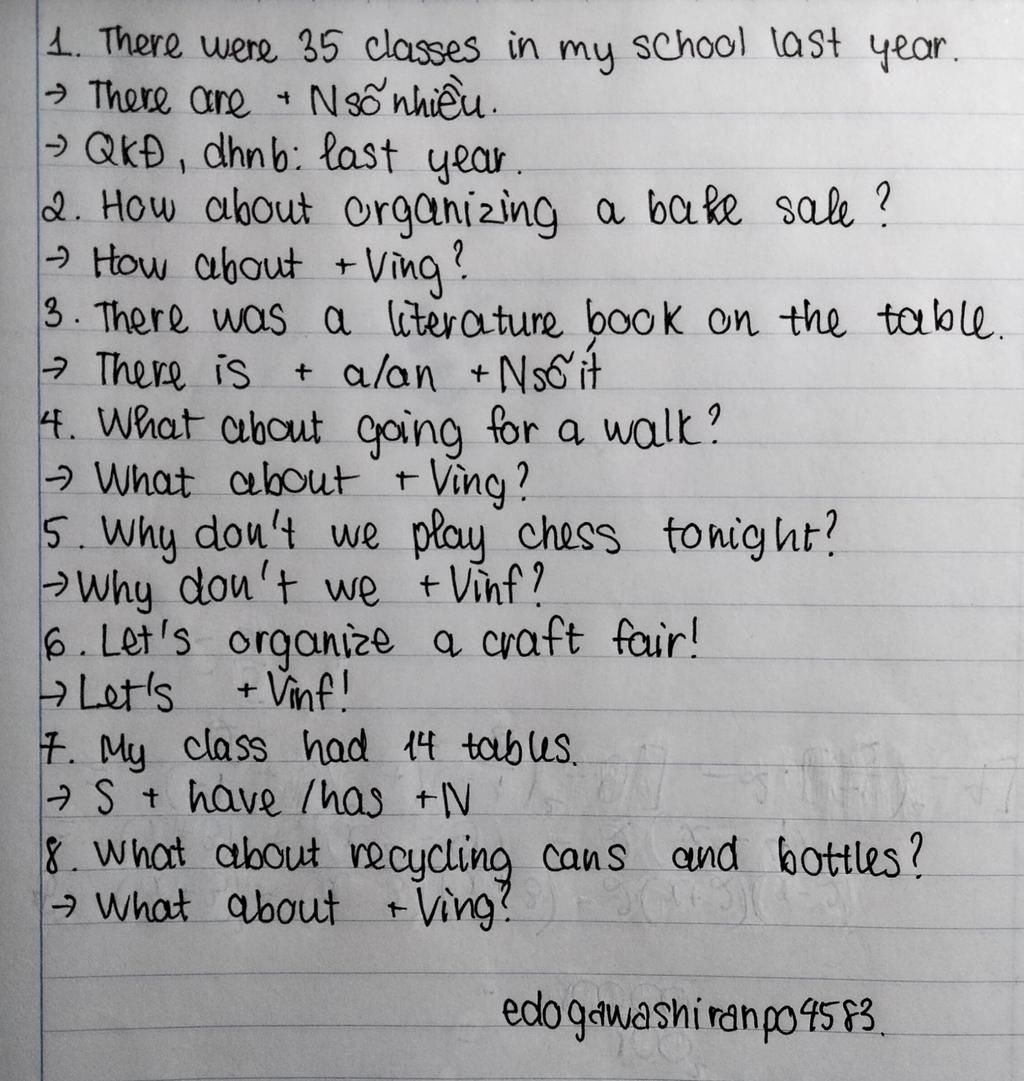 1. There were 35 classes in my school last year.
→ There are + N số nhiều.
→ QKĐ, dhnb: last year.
2. How about organizing a bake sale?
→ How about + Ving?
3. There was a literature book on the table.
→ There is + a/an + N số ít
4. What about going for a walk?
→ What about + Ving?
5. Why don't we play chess tonight?
→ Why don't we + Vinf?
6. Let's organize a craft fair!
→ Let's + Vinf!
7. My class had 14 tables.
→ S + have /has + N
8. What about recycling cans and bottles?
→ What about + Ving?
edogawashiranpo4583.